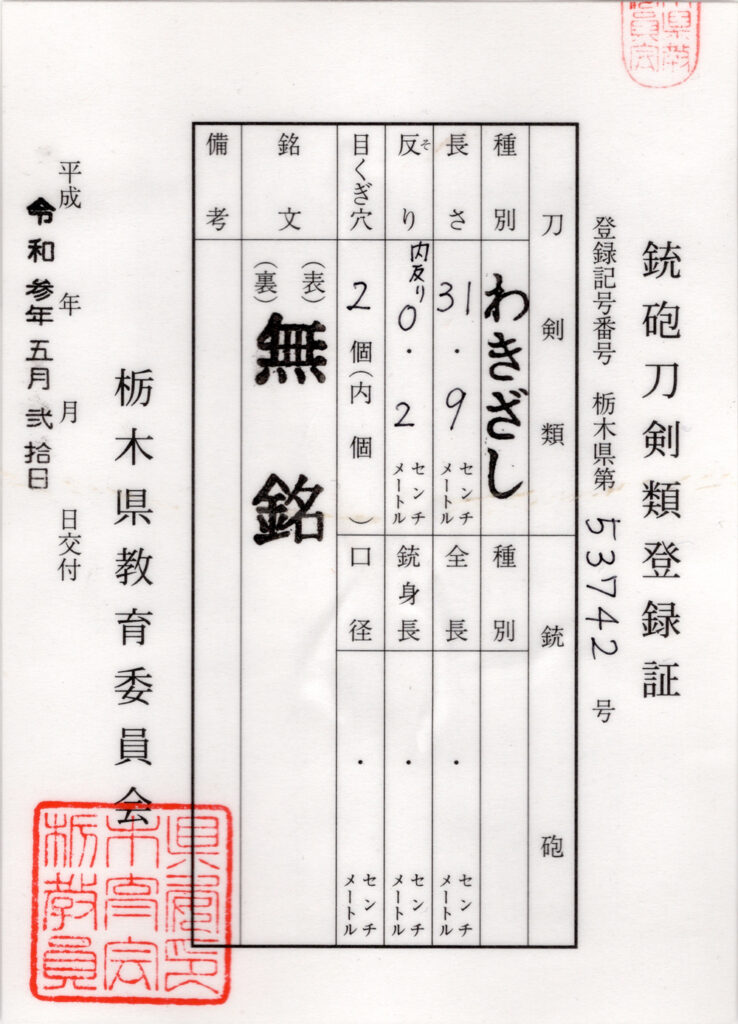 銃砲刀剣類登録証
登録記号番号 栃木県第 53742 号
刀剣類
銃砲
種別 わきざし
種別
長さ 31.9 センチメートル
全長 ・ センチメートル
反り そ 内反り 0.2 センチメートル
銃身長 ・ センチメートル
目くぎ穴 2個(内 個)
口径 ・ センチメートル
銘文 (表) (裏) 無銘
備考
栃木県教育委員会
平成 年 月 日交付
令和参年五月弐拾日